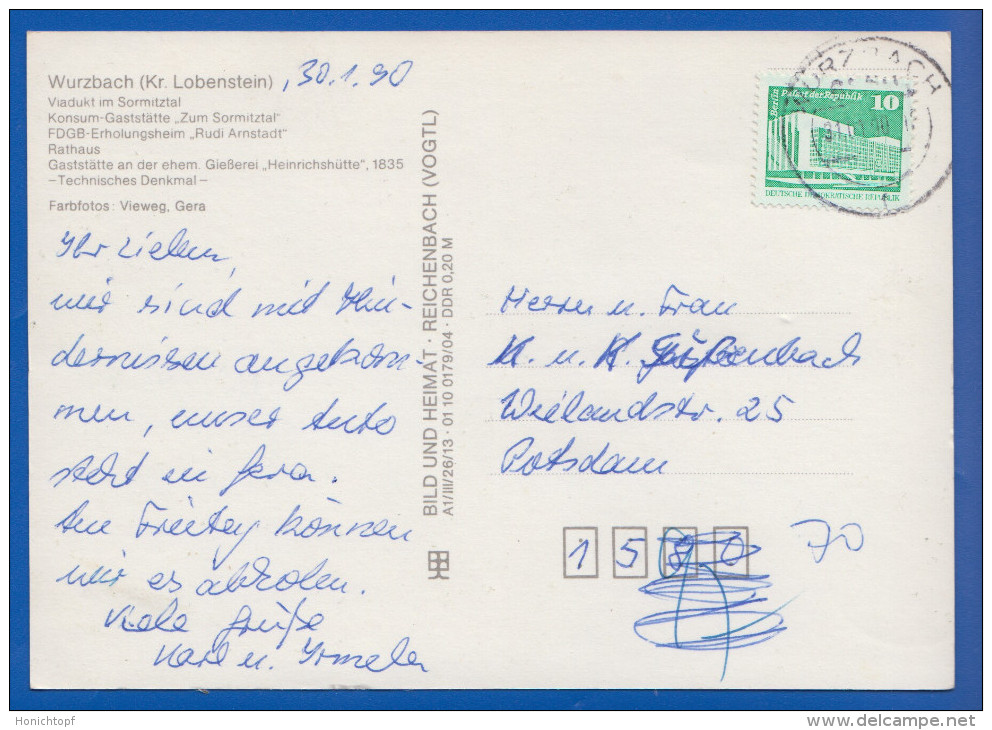 Wurzbach (Kr. Lobenstein) , 30.1.90
Viadukt im Sormitztal
Konsum-Gaststätte „Zum Sormitztal"
FDGB-Erholungsheim „Rudi Arnstadt"
Rathaus
Gaststätte an der ehem. Gießerei „Heinrichshütte", 1835
–Technisches Denkmal–
Farbfotos: Vieweg, Gera
Ihr Lieben,
wir sind mit Hin-
dernissen angekom-
men, unser Auto
steht in Gera.
Am Freitag können
wir es abholen.
Viele Grüße
Karl u.
BILD UND HEIMAT · REICHENBACH (VOGTL)
A1/III/26/13 · 01 10 0179/04 · DDR 0,20 M
WURZBACH
31.01.90
Berlin Palast der Republik 10
DEUTSCHE DEMOKRATISCHE REPUBLIK
Herrn u. Frau
K. u. K.
Weilandstr. 25
Potsdam
1 5 8 0 70
Honichtopf
www.delcampe.net